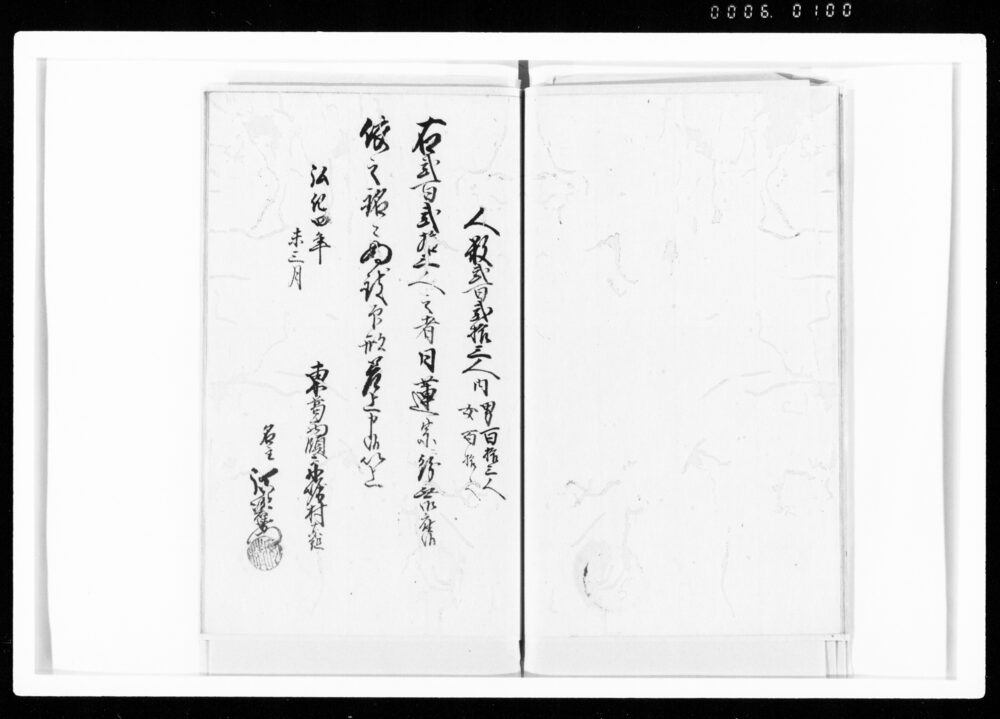 0006 0100
人数弐百弐拾三人内
男百拾三人
女百拾人
右弐百弐拾三人之者日蓮宗ニ紛無御座候
依之銘々
印形差上申候以上
弘化四年
未三月
東葛西領
村
名主